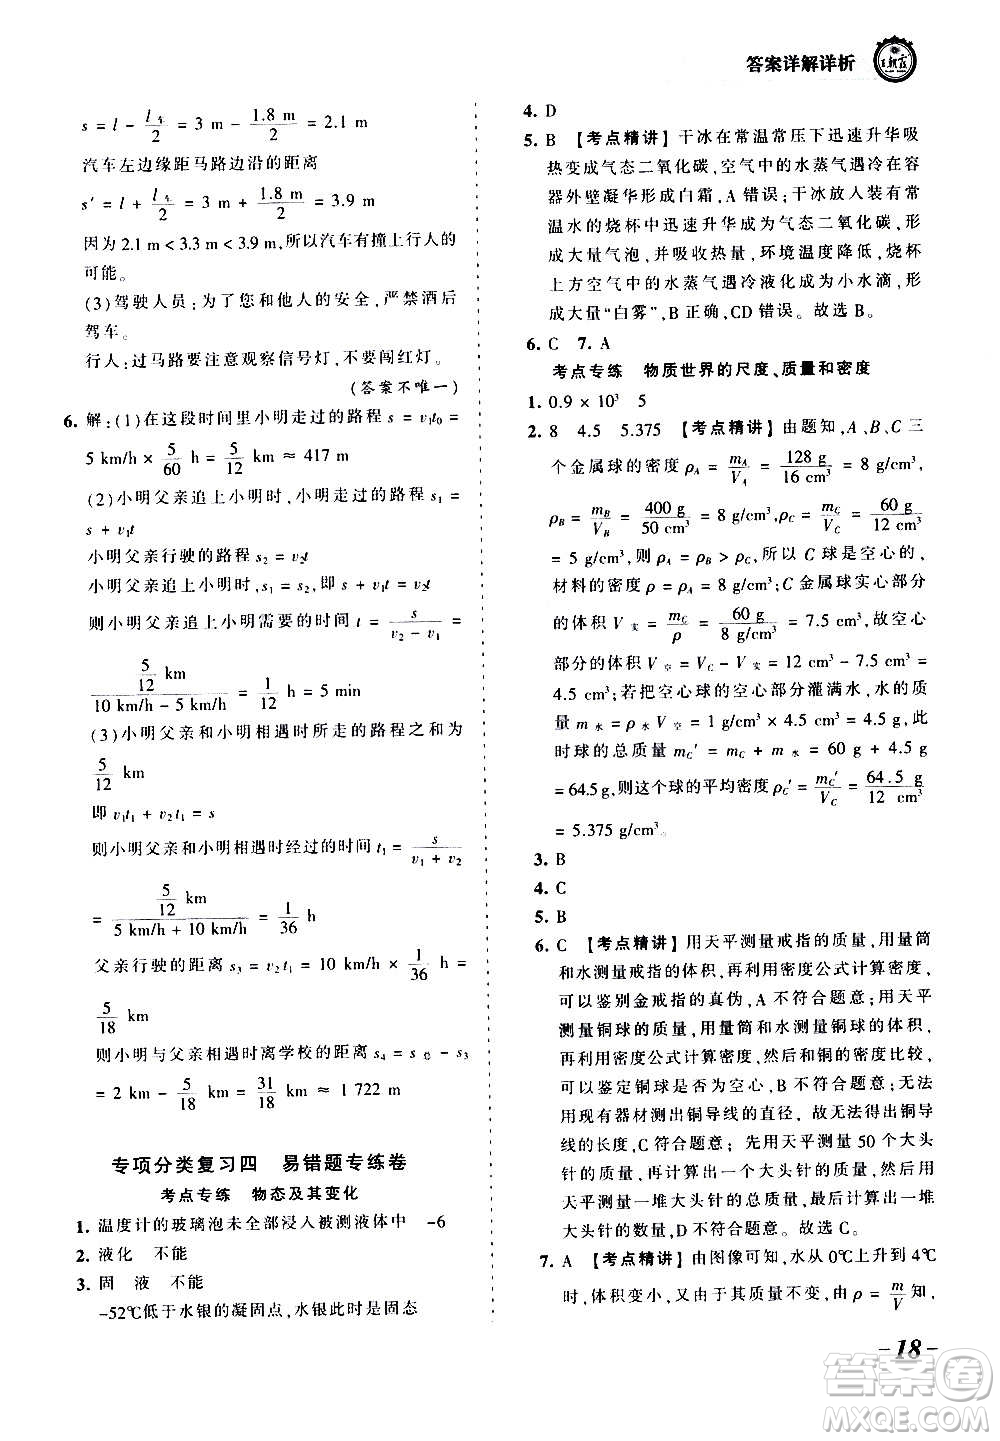 答案详解详析
s = l - l车/2 = 3 m - 1.8 m/2 = 2.1 m
汽车左边缘距马路边沿的距离
s′ = l + l车/2 = 3 m + 1.8 m/2 = 3.9 m
因为 2.1 m < 3.3 m < 3.9 m,所以汽车有撞上行人的
可能。
(3)驾驶人员:为了您和他人的安全,严禁酒后
驾车。
行人:过马路要注意观察信号灯,不要闯红灯。
(答案不唯一)
6. 解:(1)在这段时间里小明走过的路程 s = v₁t₀ =
5 km/h × 5/60 h = 5/12 km ≈ 417 m
(2)小明父亲追上小明时,小明走过的路程 s₁ =
s + v₁t
小明父亲行驶的路程 s₂ = v₂t
小明父亲追上小明时,s₁ = s₂,即 s + v₁t = v₂t
则小明父亲追上小明需要的时间 t = s/(v₂ - v₁) =
(5/12 km)/(10 km/h - 5 km/h) = 1/12 h = 5 min
(3)小明父亲和小明相遇时所走的路程之和为
5/12 km
即 v₁t₁ + v₂t₁ = s
则小明父亲和小明相遇时经过的时间 t₁ = s/(v₁ + v₂)
= (5/12 km)/(5 km/h + 10 km/h) = 1/36 h
父亲行驶的距离 s₃ = v₂t₁ = 10 km/h × 1/36 h =
5/18 km
则小明与父亲相遇时离学校的距离 s₄ = s总 - s₃
= 2 km - 5/18 km = 31/18 km ≈ 1 722 m
专项分类复习四 易错题专练卷
考点专练 物态及其变化
1. 温度计的玻璃泡未全部浸入被测液体中 -6
2. 液化 不能
3. 固 液 不能
-52℃低于水银的凝固点,水银此时是固态
4. D
5. B 【考点精讲】干冰在常温常压下迅速升华吸
热变成气态二氧化碳,空气中的水蒸气遇冷在容
器外壁凝华形成白霜,A 错误;干冰放入装有常
温水的烧杯中迅速升华成为气态二氧化碳,形
成大量气泡,并吸收热量,环境温度降低,烧杯
上方空气中的水蒸气遇冷液化成为小水滴,形
成大量“白雾”,B 正确,CD 错误。故选 B。
6. C 7. A
考点专练 物质世界的尺度、质量和密度
1. 0.9 × 10³ 5
2. 8 4.5 5.375 【考点精讲】由题知,A、B、C 三
个金属球的密度 ρA = mA/VA = 128 g/16 cm³ = 8 g/cm³,
ρB = mB/VB = 400 g/50 cm³ = 8 g/cm³,ρC = mC/VC = 60 g/12 cm³
= 5 g/cm³,则 ρA = ρB > ρC,所以 C 球是空心的,
材料的密度 ρ = ρA = 8 g/cm³;C 金属球实心部分
的体积 V实 = mC/ρ = 60 g/8 g/cm³ = 7.5 cm³,空心
部分的体积 V空 = VC - V实 = 12 cm³ - 7.5 cm³ =
4.5 cm³;若把空心球的空心部分灌满水,水的质
量 m水 = ρ水V空 = 1 g/cm³ × 4.5 cm³ = 4.5 g,此
时球的总质量 mC′ = mC + m水 = 60 g + 4.5 g
= 64.5 g,则这个球的平均密度 ρC′ = mC′/VC = 64.5 g/12 cm³
= 5.375 g/cm³。
3. B
4. C
5. B
6. C 【考点精讲】用天平测量戒指的质量,用量筒
和水测量戒指的体积,再利用密度公式计算密度,
可以鉴别金戒指的真伪,A 不符合题意;用天平
测量铜球的质量,用量筒和水测量铜球的体积,
再利用密度公式计算密度,然后和铜的密度比较,
可以鉴定铜球是否为空心,B 不符合题意;利
用现有器材测出铜导线的直径,故无法得出铜导
线的长度,C 符合题意;先用天平测量 50 个大头
针的质量,从而得到一个大头针的质量,然后用
天平测量一堆大头针的总质量,最后得出这一堆
大头针的数量,D 不符合题意。故选 C。
7. A 【考点精讲】由图像可知,水从 0℃上升到 4℃
时,体积变小,又由于其质量不变,由 ρ = m/V 可知,
-18-
答案圈
MXQE.COM